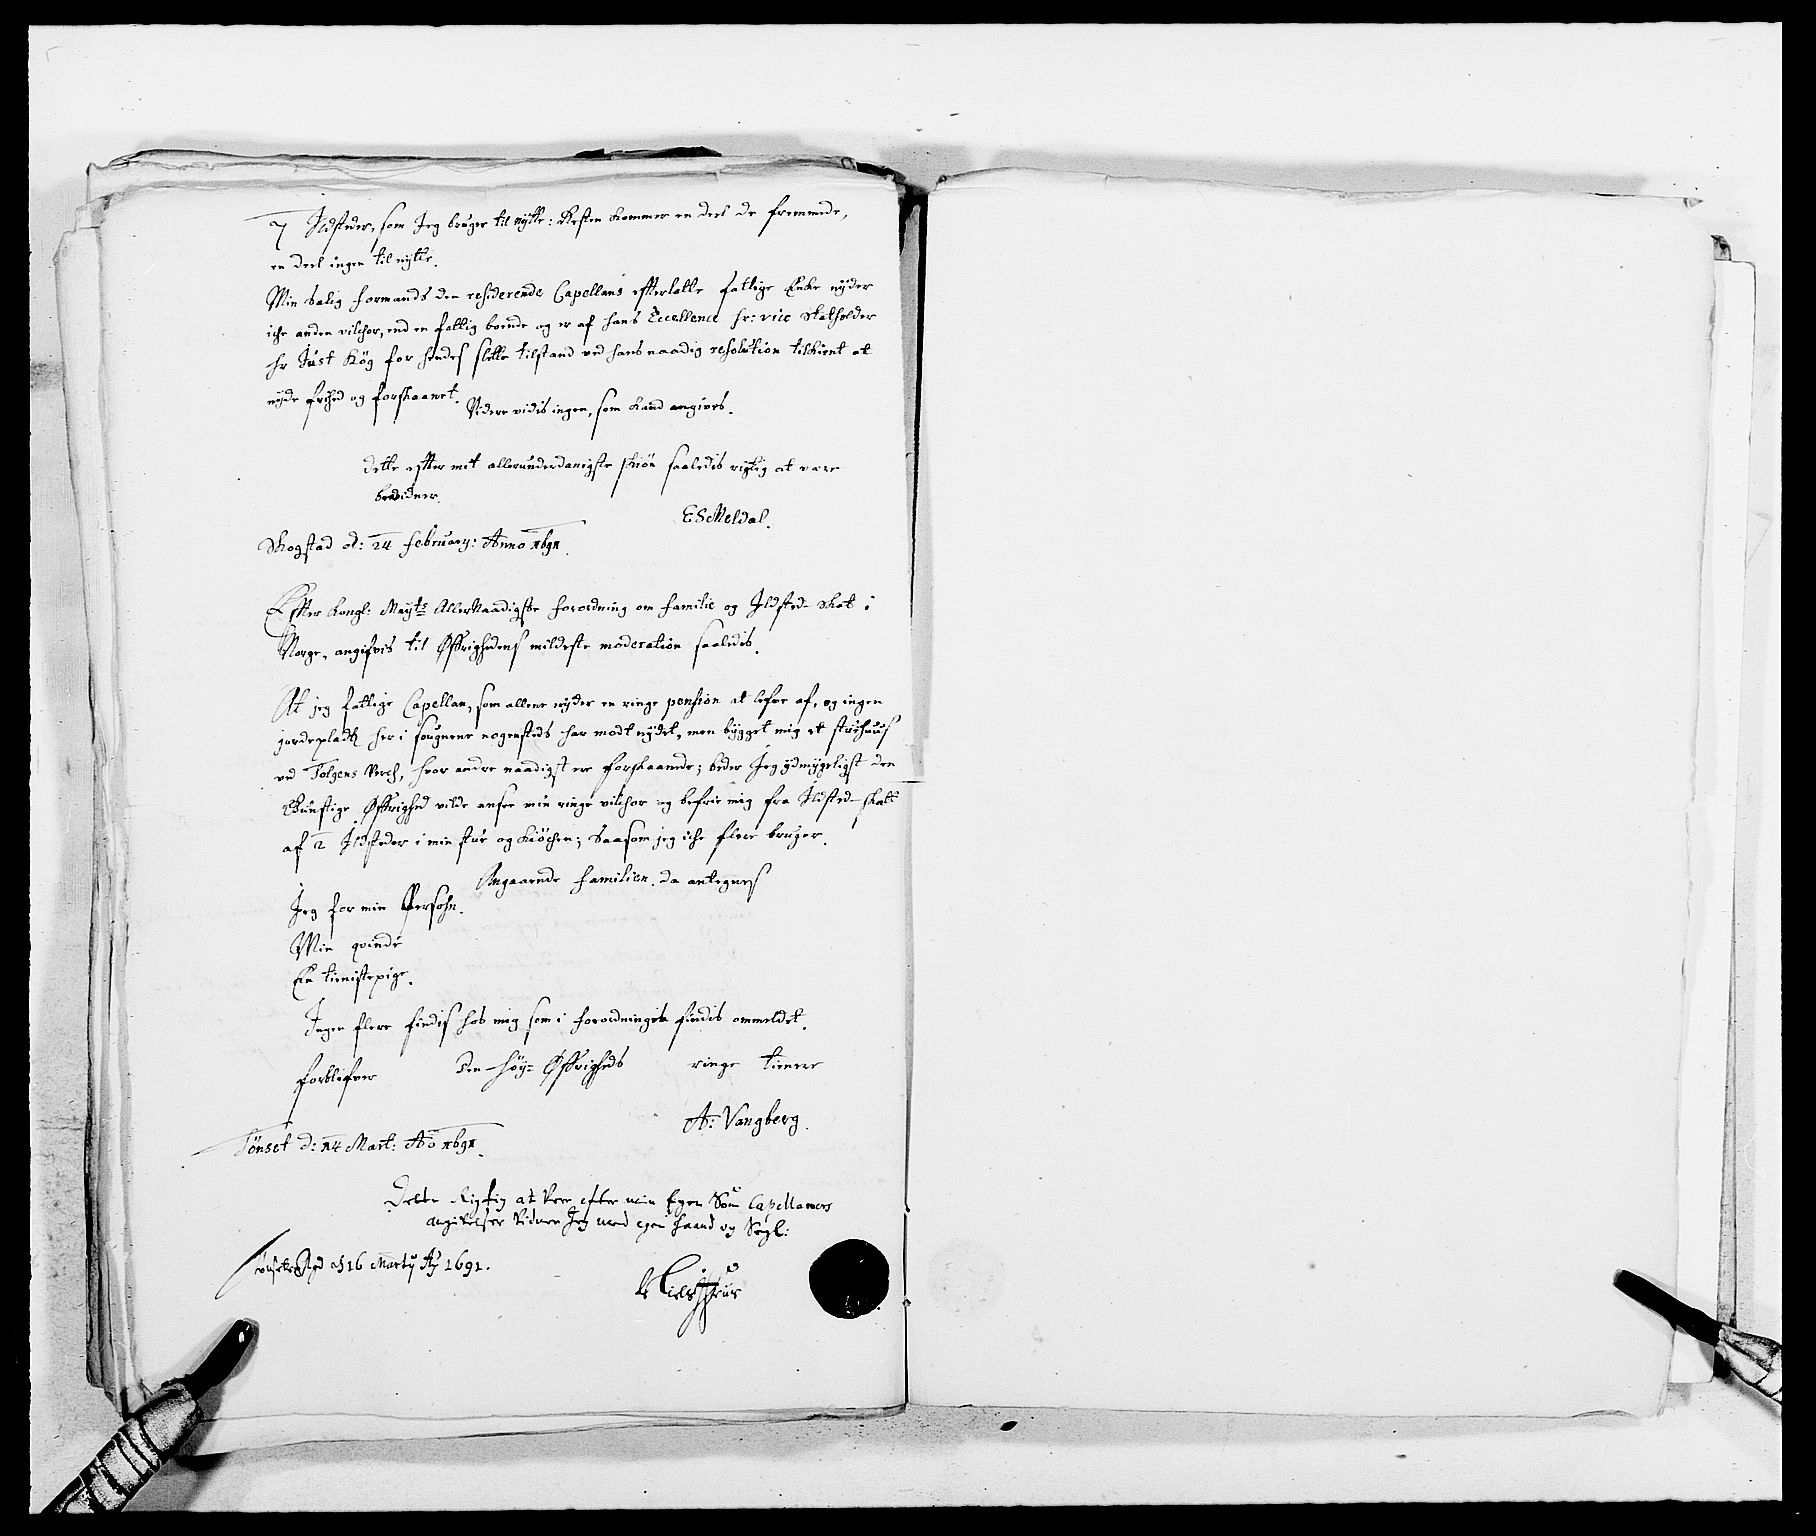 7 Ildsteder, som Jeg bruger til nytte: Resten kommer en deel de fremmede,
en deel ingen til nytte.
Min Salig Formands den residerende Capellans efterlatte fattige Encke nyder
iche anden vilchor, end en fattig bonde og er af hans Excellence hr: vice Statholder
hr Just Høg for hendes slette tilstand ved hans naadig resolution tilkient at
nyde frihed og forskaanet. Videre vidis ingen, som kand angives.
Dette effter mit allerunderdanigste skiøn saaledis rigtig at være
bevidner.
ES Meldal.
Skogstad d: 24 February: Anno 1691.
Effter Kongl: Mayts AllerNaadigste Forordning om Familie og Ildsted-Skat i
Norge, angifves til Øffrighedens mildeste moderation saaledis.
At jeg fattige Capellan, som allene nyder en ringe pension at lefve af, og ingen
jordeplads her i sougnene nogensteds har modt nydet, men bygget mig et stuehuus
ved Tolgens Verch, hvor andre naadigst ere forskaanede; beder Jeg ydmygeligst den
Gunstige Øffrighed vilde ansee min ringe vilchor og befrie mig fra Ildsted-skatt
af 2 Ildsteder i min stue og kiøchen; Saasom jeg iche flere bruger.
Angaaende Familien, da antegnes
Jeg for min Persohn.
Min qvinde
En tienistepige.
Ingen flere findis hos mig som i forordningen findis ommeldet.
Forblifver den Høy= Øffrigheds ringe tienere
A: Vangberg.
Tønset d: 14 Mart: Ao 1691.
Dette Rigtig at Vere efter min Egen Capellaners
angivelser Vidner Jeg med egen haand og Segl:
d 16 Marty Ao 1691.